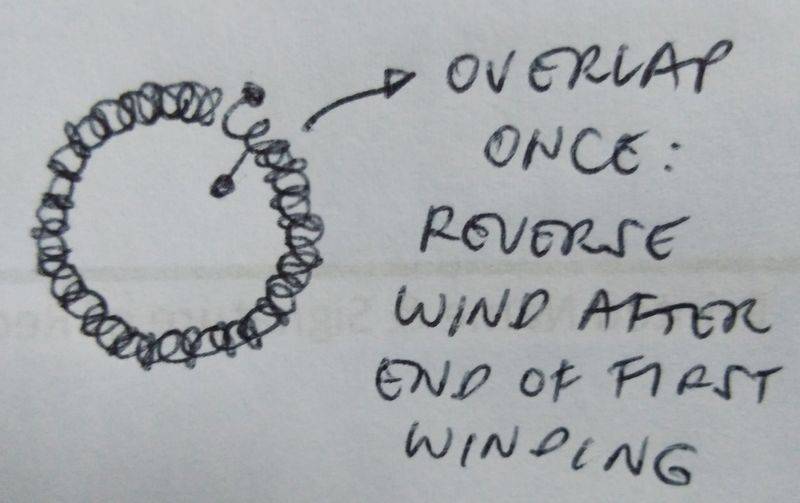 OVERLAP
ONCE:
REVERSE
WIND AFTER
END OF FIRST
WINDING